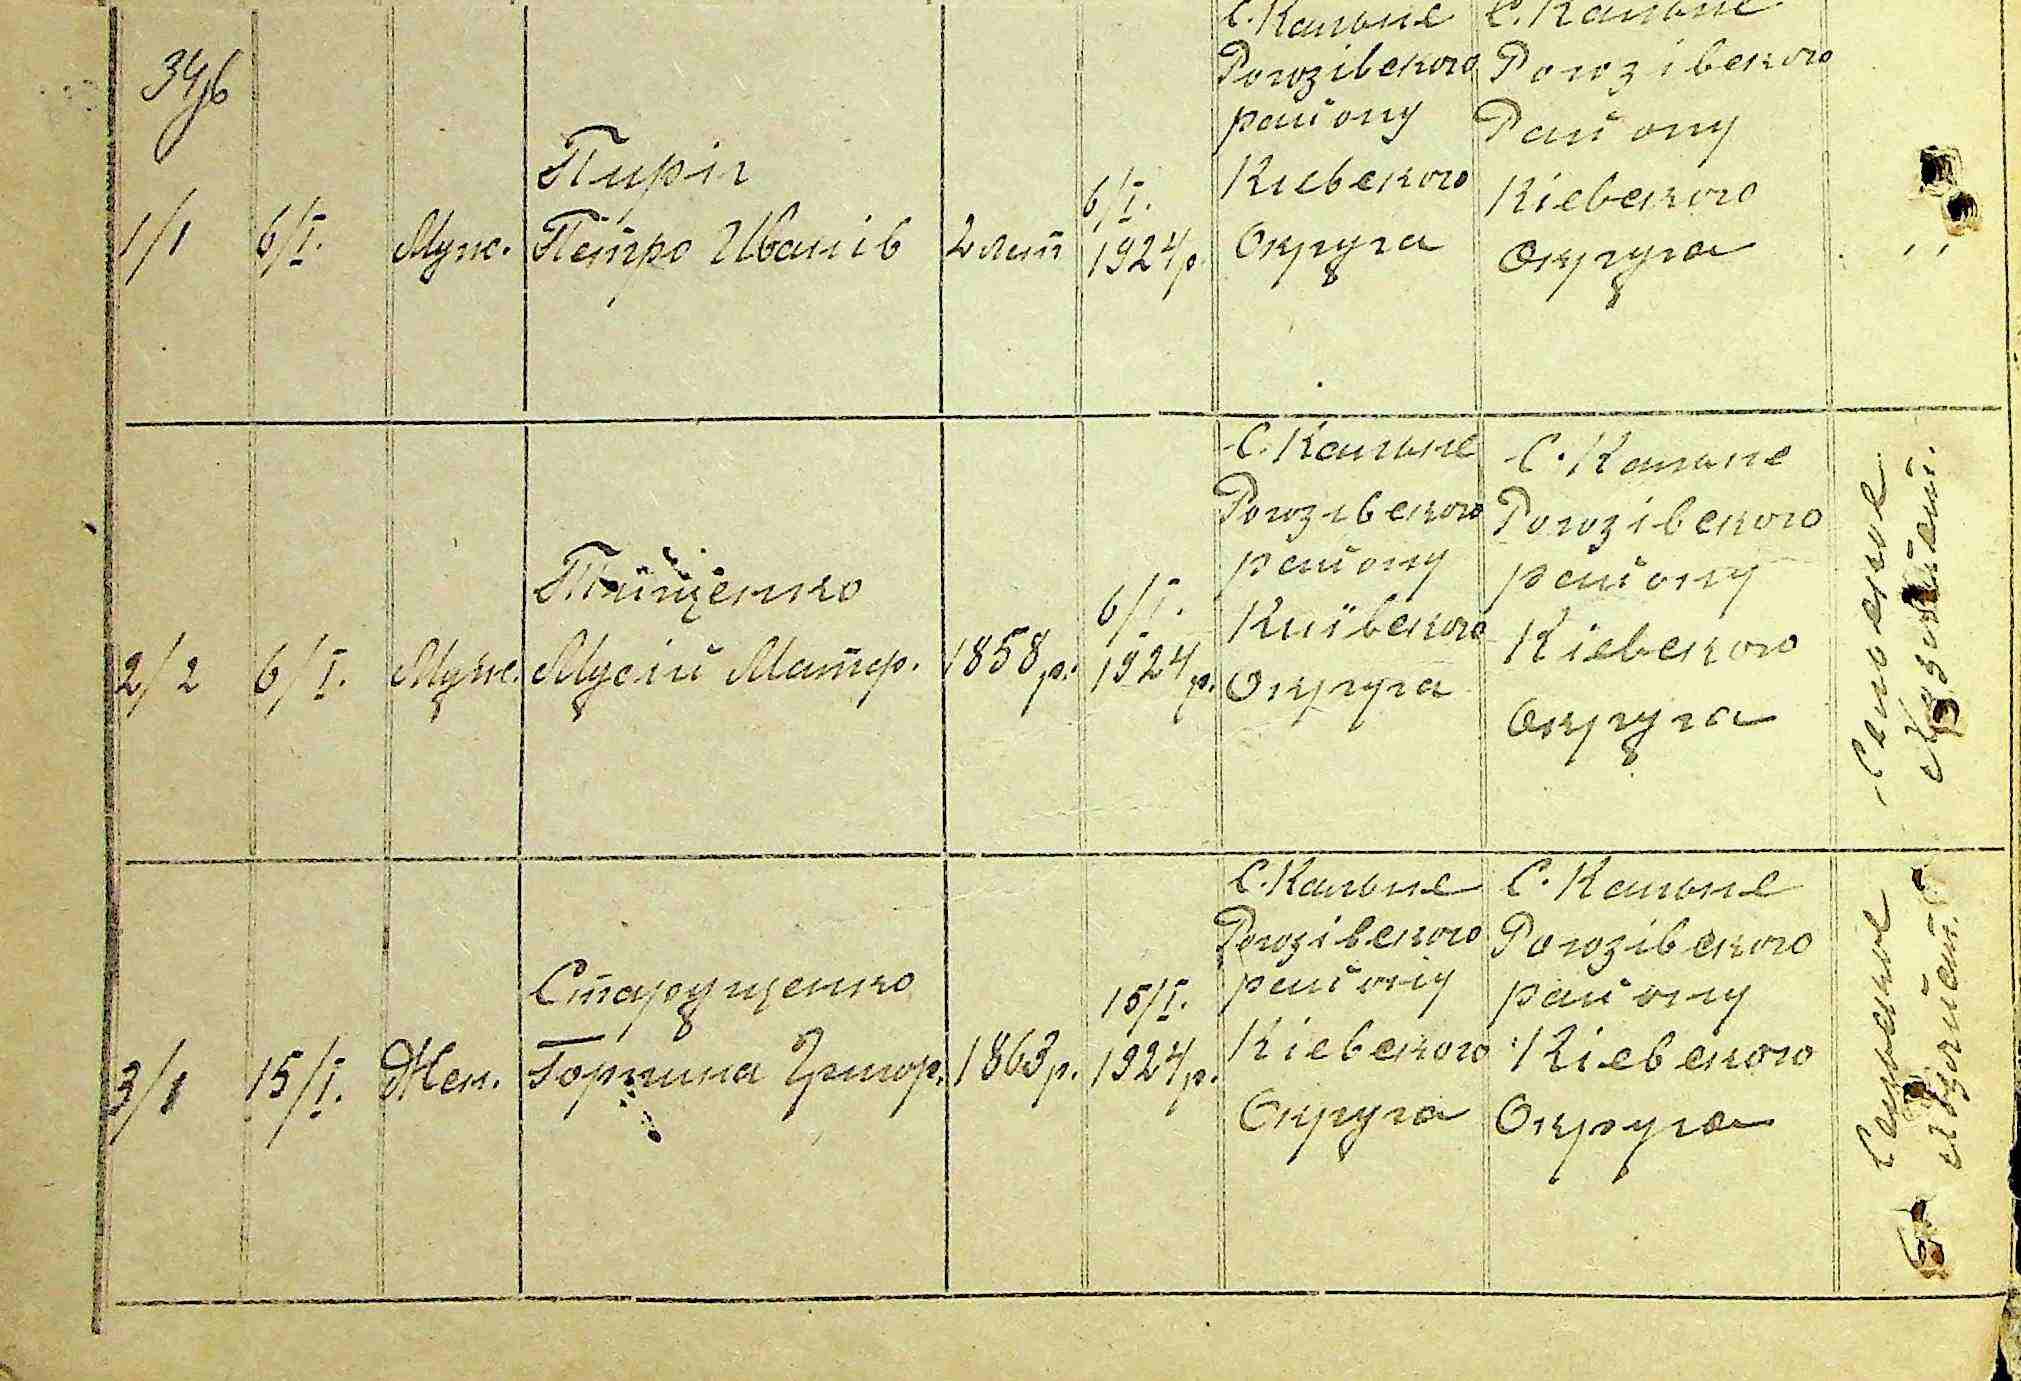 34/6
1/1
6/I.
Муж.
Пиріг
Петро Іванів
2 літ
6/I.
1924р.
С. Кальне
Рогозівського
району
Киевского
Округа
С. Кальне
Рогозівского
Району
Кіевского
Округа
,,
2/2
6/I.
Муж.
Тищенко
Мусій Матф.
1858р.
6/I.
1924р.
С. Кальне
Рогозівского
району
Киівского
Округа
С. Кальне
Рогозівского
району
Кіевского
Округа
Сельское
3/1
15/I.
Жен.
Старущенко
Горпина Григор.
1863р.
15/I.
1924р.
С. Кальне
Рогозівского
району
Кіевского
Округа
С. Кальне
Рогозівского
району
Кіевского
Округа
Сельское